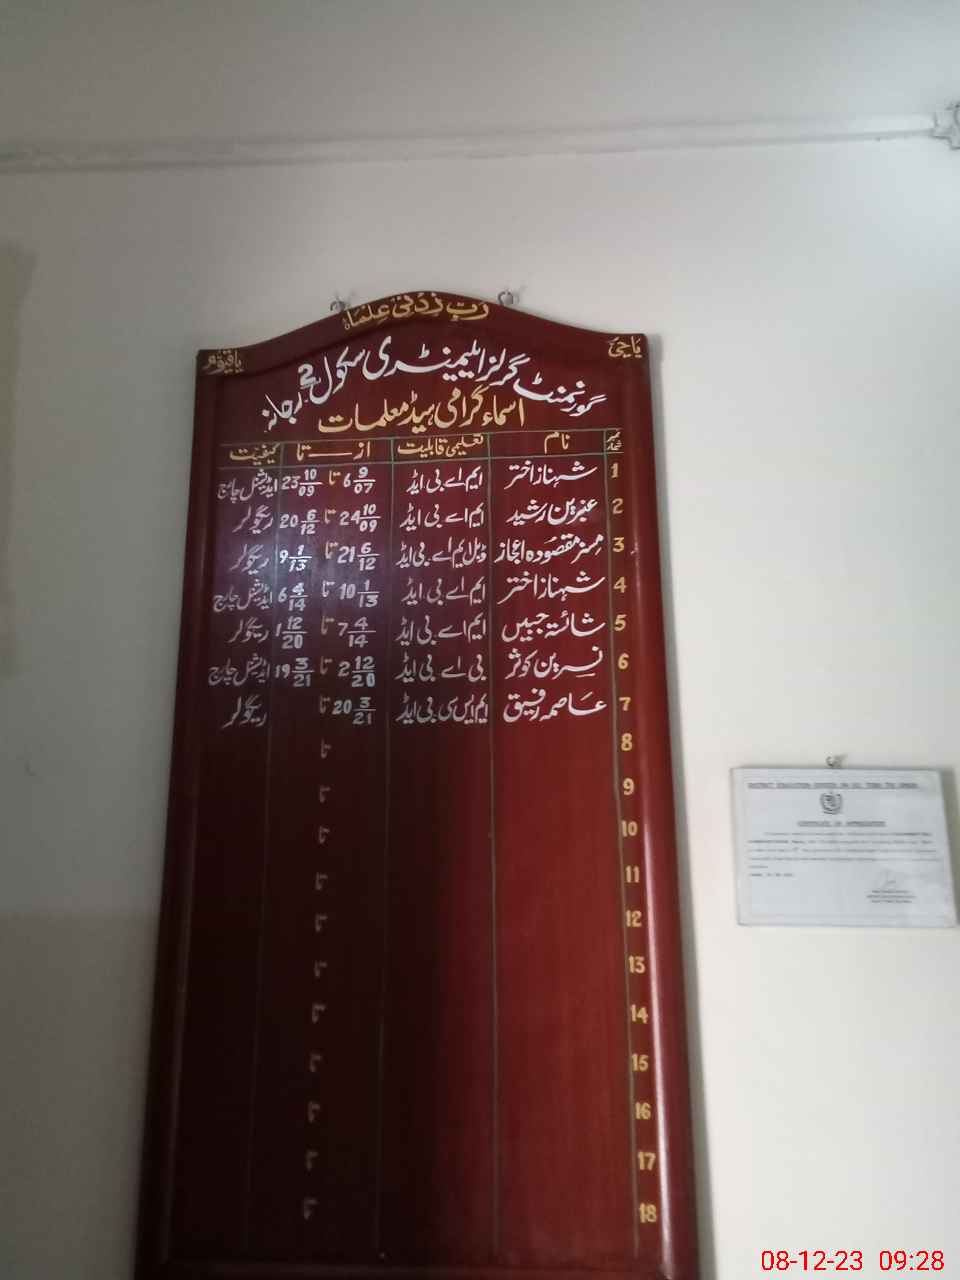 رَبِّ زِدْنِیْ عِلْمًا
یَاحَیُّ
یَاقَیُّوْمُ
گورنمنٹ گرلز ایلیمنٹری سکول 2 رجانہ
اسماء گرامی ہیڈ معلمات
نمبر شمار نام تعلیمی قابلیت از تا کیفیت
1 شہناز اختر ایم اے بی ایڈ 6 9/07 تا 23 10/09 ایڈیشنل چارج
2 عنبرین رشید ایم اے بی ایڈ 24 10/09 تا 20 6/12 ریگولر
3 مسز مقصودہ اعجاز ڈبل ایم اے بی ایڈ 21 6/12 تا 9 1/13 ریگولر
4 شہناز اختر ایم اے بی ایڈ 10 1/13 تا 6 4/14 ایڈیشنل چارج
5 شائستہ جبیں ایم اے بی ایڈ 7 4/14 تا 1 12/20 ریگولر
6 نسرین کوثر بی اے بی ایڈ 2 12/20 تا 19 3/21 ایڈیشنل چارج
7 عاصمہ رفیق ایم ایس سی بی ایڈ 20 3/21 تا ریگولر
8 تا
9 تا
10 تا
11 تا
12 تا
13 تا
14 تا
15 تا
16 تا
17 تا
18 تا
CERTIFICATE OF APPRECIATION
08-12-23 09:28